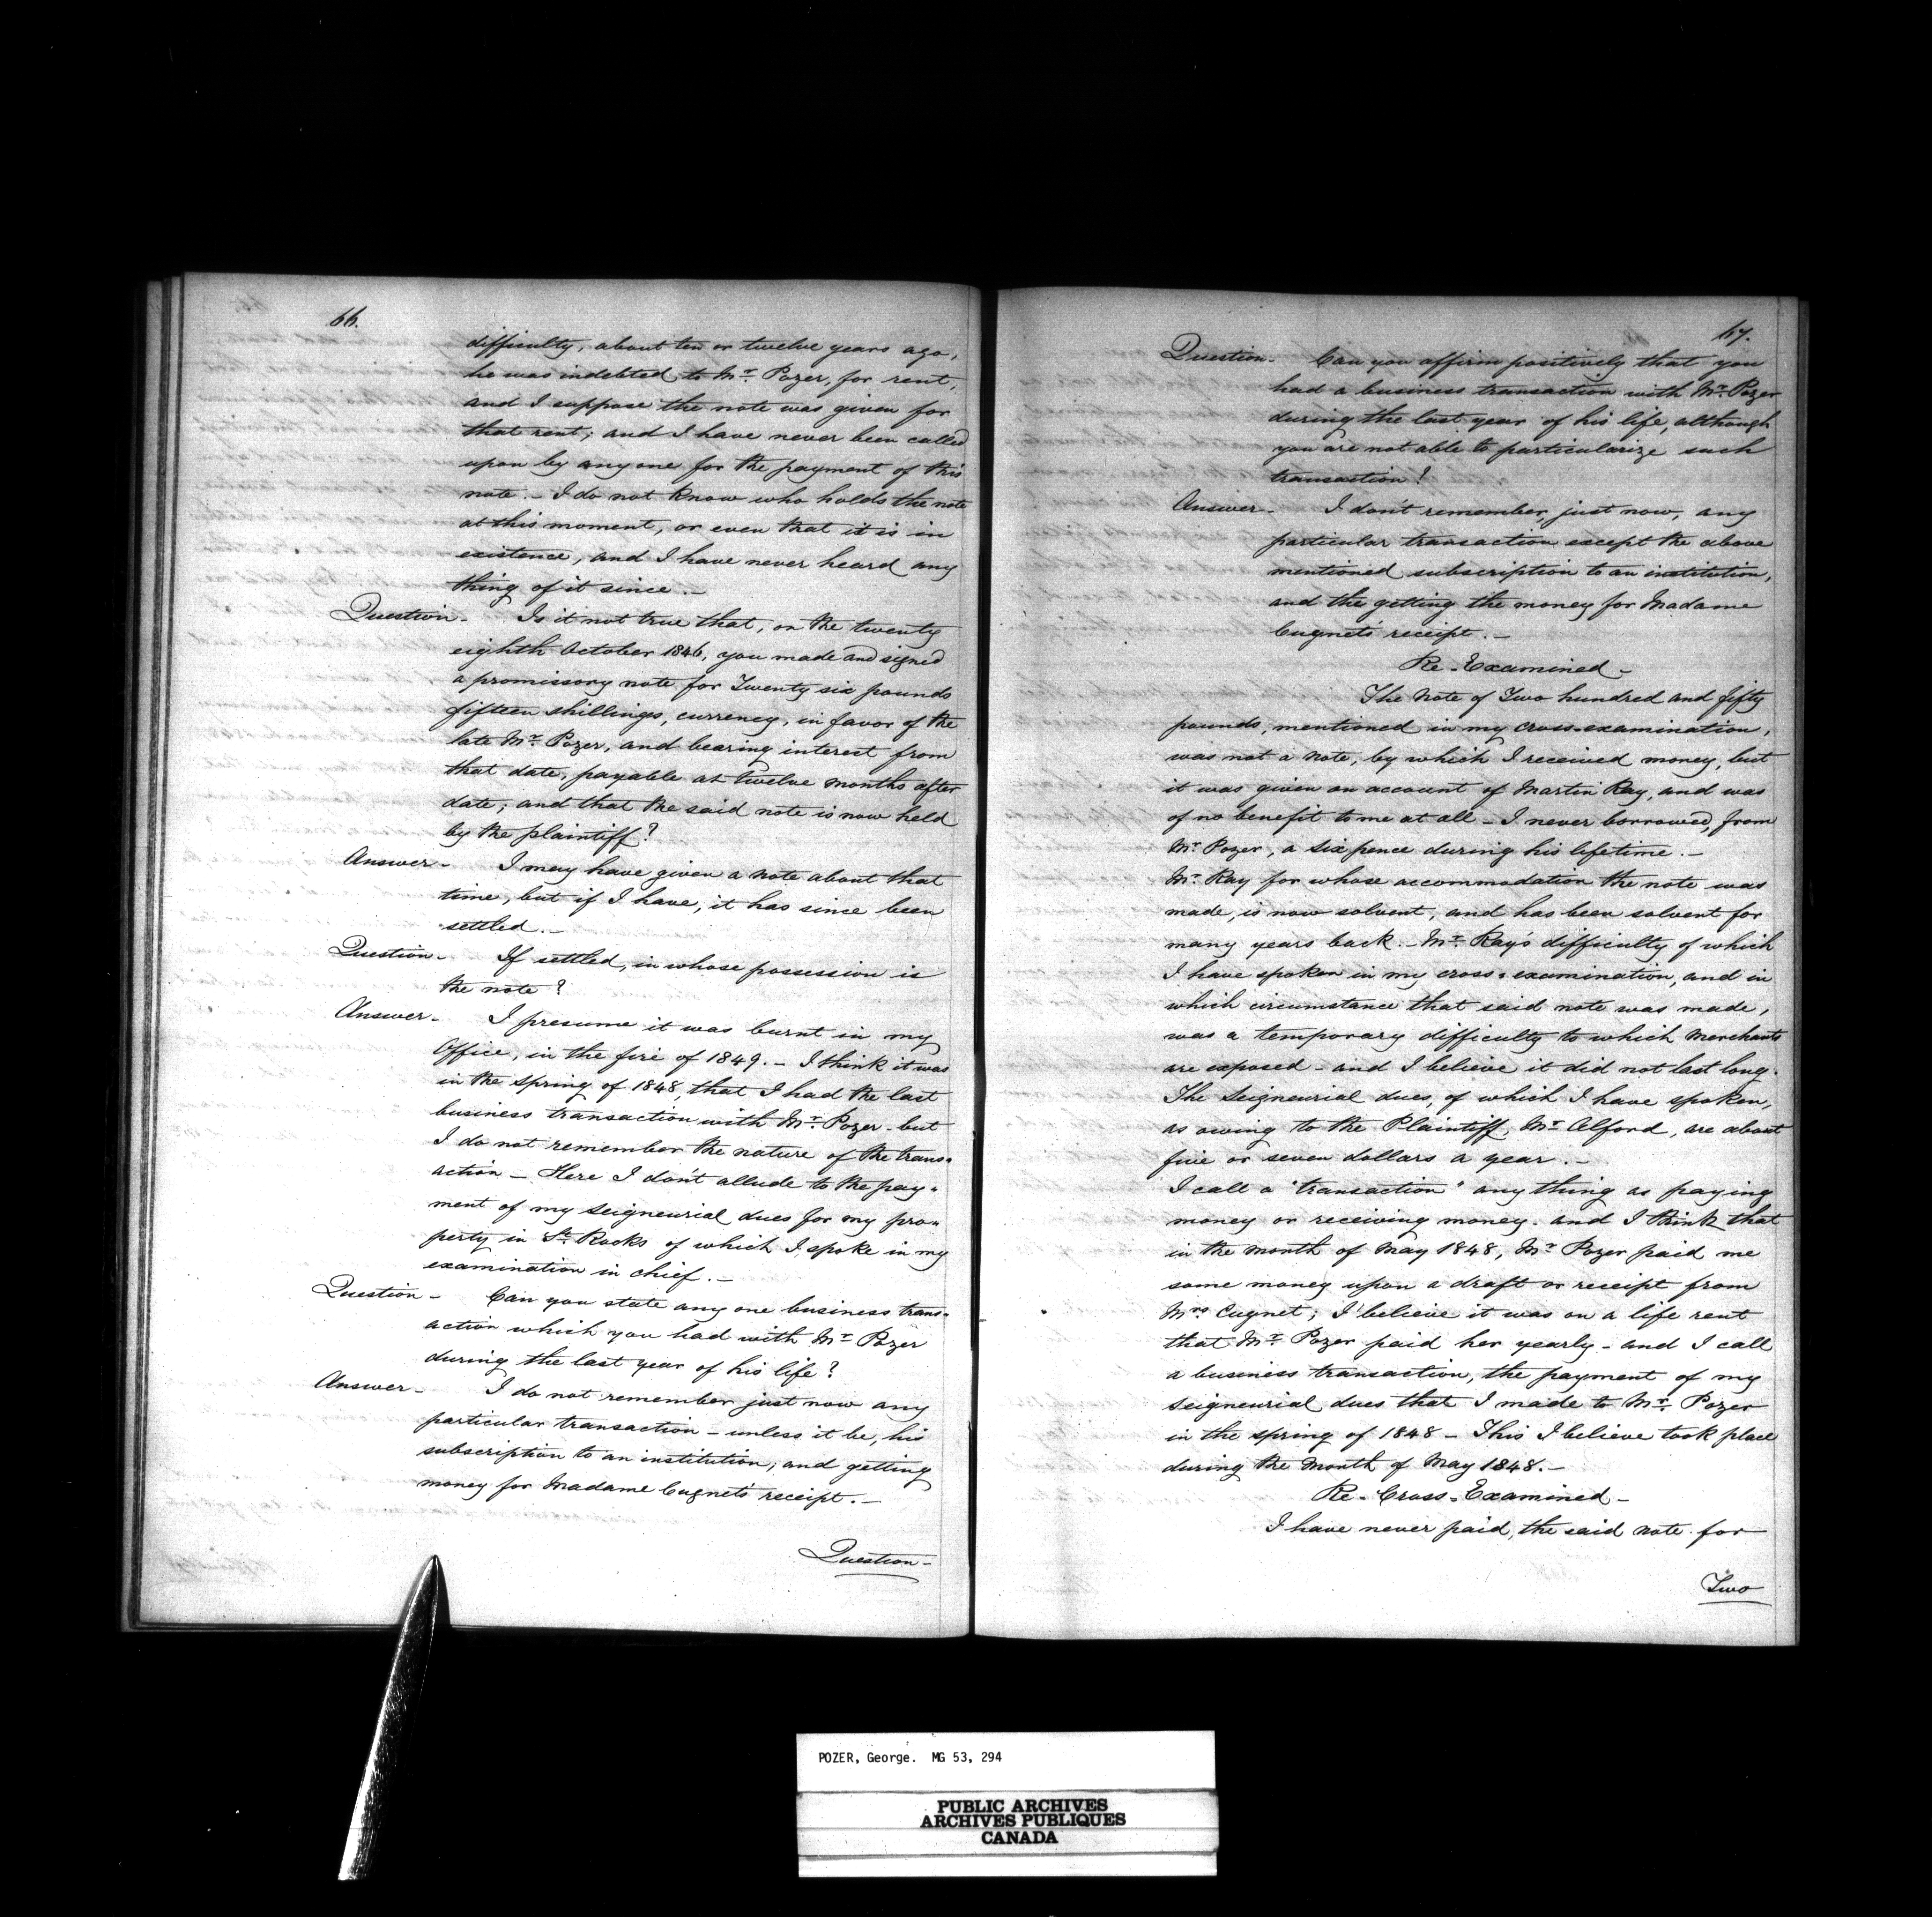 66.
difficulty, about ten or twelve years ago,
he was indebted to Mr. Pozer, for rent,
and I suppose the note was given for
that rent; and I have never been called
upon by any one for the payment of this
note. - I do not know who holds the note
at this moment, or even that it is in
existence, and I have never heard any
thing of it since. -
Question - Is it not true that, on the twenty
eighth October 1846, you made and signed
a promissory note for Twenty six pounds
fifteen shillings, currency, in favor of the
late Mr. Pozer, and bearing interest from
that date, payable at twelve months after
date; and that the said note is now held
by the plaintiff?
Answer - I may have given a note about that
time, but if I have, it has since been
settled. -
Question - If settled, in whose possession is
the note?
Answer - I presume it was burnt in my
Office, in the fire of 1849. - I think it was
in the spring of 1848, that I had the last
business transaction with Mr. Pozer - but
I do not remember the nature of the trans=
action - Here I don't allude to the pay=
ment of my seigneurial dues for my pro=
perty in St. Rocks of which I spoke in my
examination in chief. -
Question - Can you state any one business trans=
action which you had with Mr. Pozer
during the last year of his life?
Answer - I do not remember just now any
particular transaction - unless it be, his
subscription to an institution; and getting
money for Madame Cugnet's receipt. -
Question -
67.
Question - Can you affirm positively that you
had a business transaction with Mr. Pozer
during the last year of his life, although
you are not able to particularize such
transaction?
Answer - I don't remember, just now, any
particular transaction except the above
mentioned subscription to an institution,
and the getting the money for Madame
Cugnet's receipt. -
Re-Examined -
The Note of Two hundred and fifty
pounds, mentioned in my cross-examination,
was not a note, by which I received money, but
it was given on account of Martin Ray, and was
of no benefit to me at all - I never borrowed, from
Mr. Pozer, a six pence during his lifetime. -
Mr. Ray for whose accommodation the note was
made, is now solvent, and has been solvent for
many years back. - Mr. Ray's difficulty of which
I have spoken in my cross=examination, and in
which circumstance that said note was made,
was a temporary difficulty to which Merchants
are exposed - and I believe it did not last long.
The Seigneurial dues, of which I have spoken,
as owing to the Plaintiff Mr. Alford, are about
five or seven dollars a year. -
I call a "transaction" any thing as paying
money or receiving money. and I think that
in the month of May 1848, Mr. Pozer paid me
some money upon a draft or receipt from
Mrs. Cugnet; I believe it was on a life rent
that Mr. Pozer paid her yearly - and I call
a business transaction, the payment of my
seigneurial dues that I made to Mr. Pozer
in the spring of 1848 - This I believe took place
during the Month of May 1848. -
Re-Cross-Examined -
I have never paid, the said note for
Two
POZER, George. MG 53, 294
PUBLIC ARCHIVES
ARCHIVES PUBLIQUES
CANADA